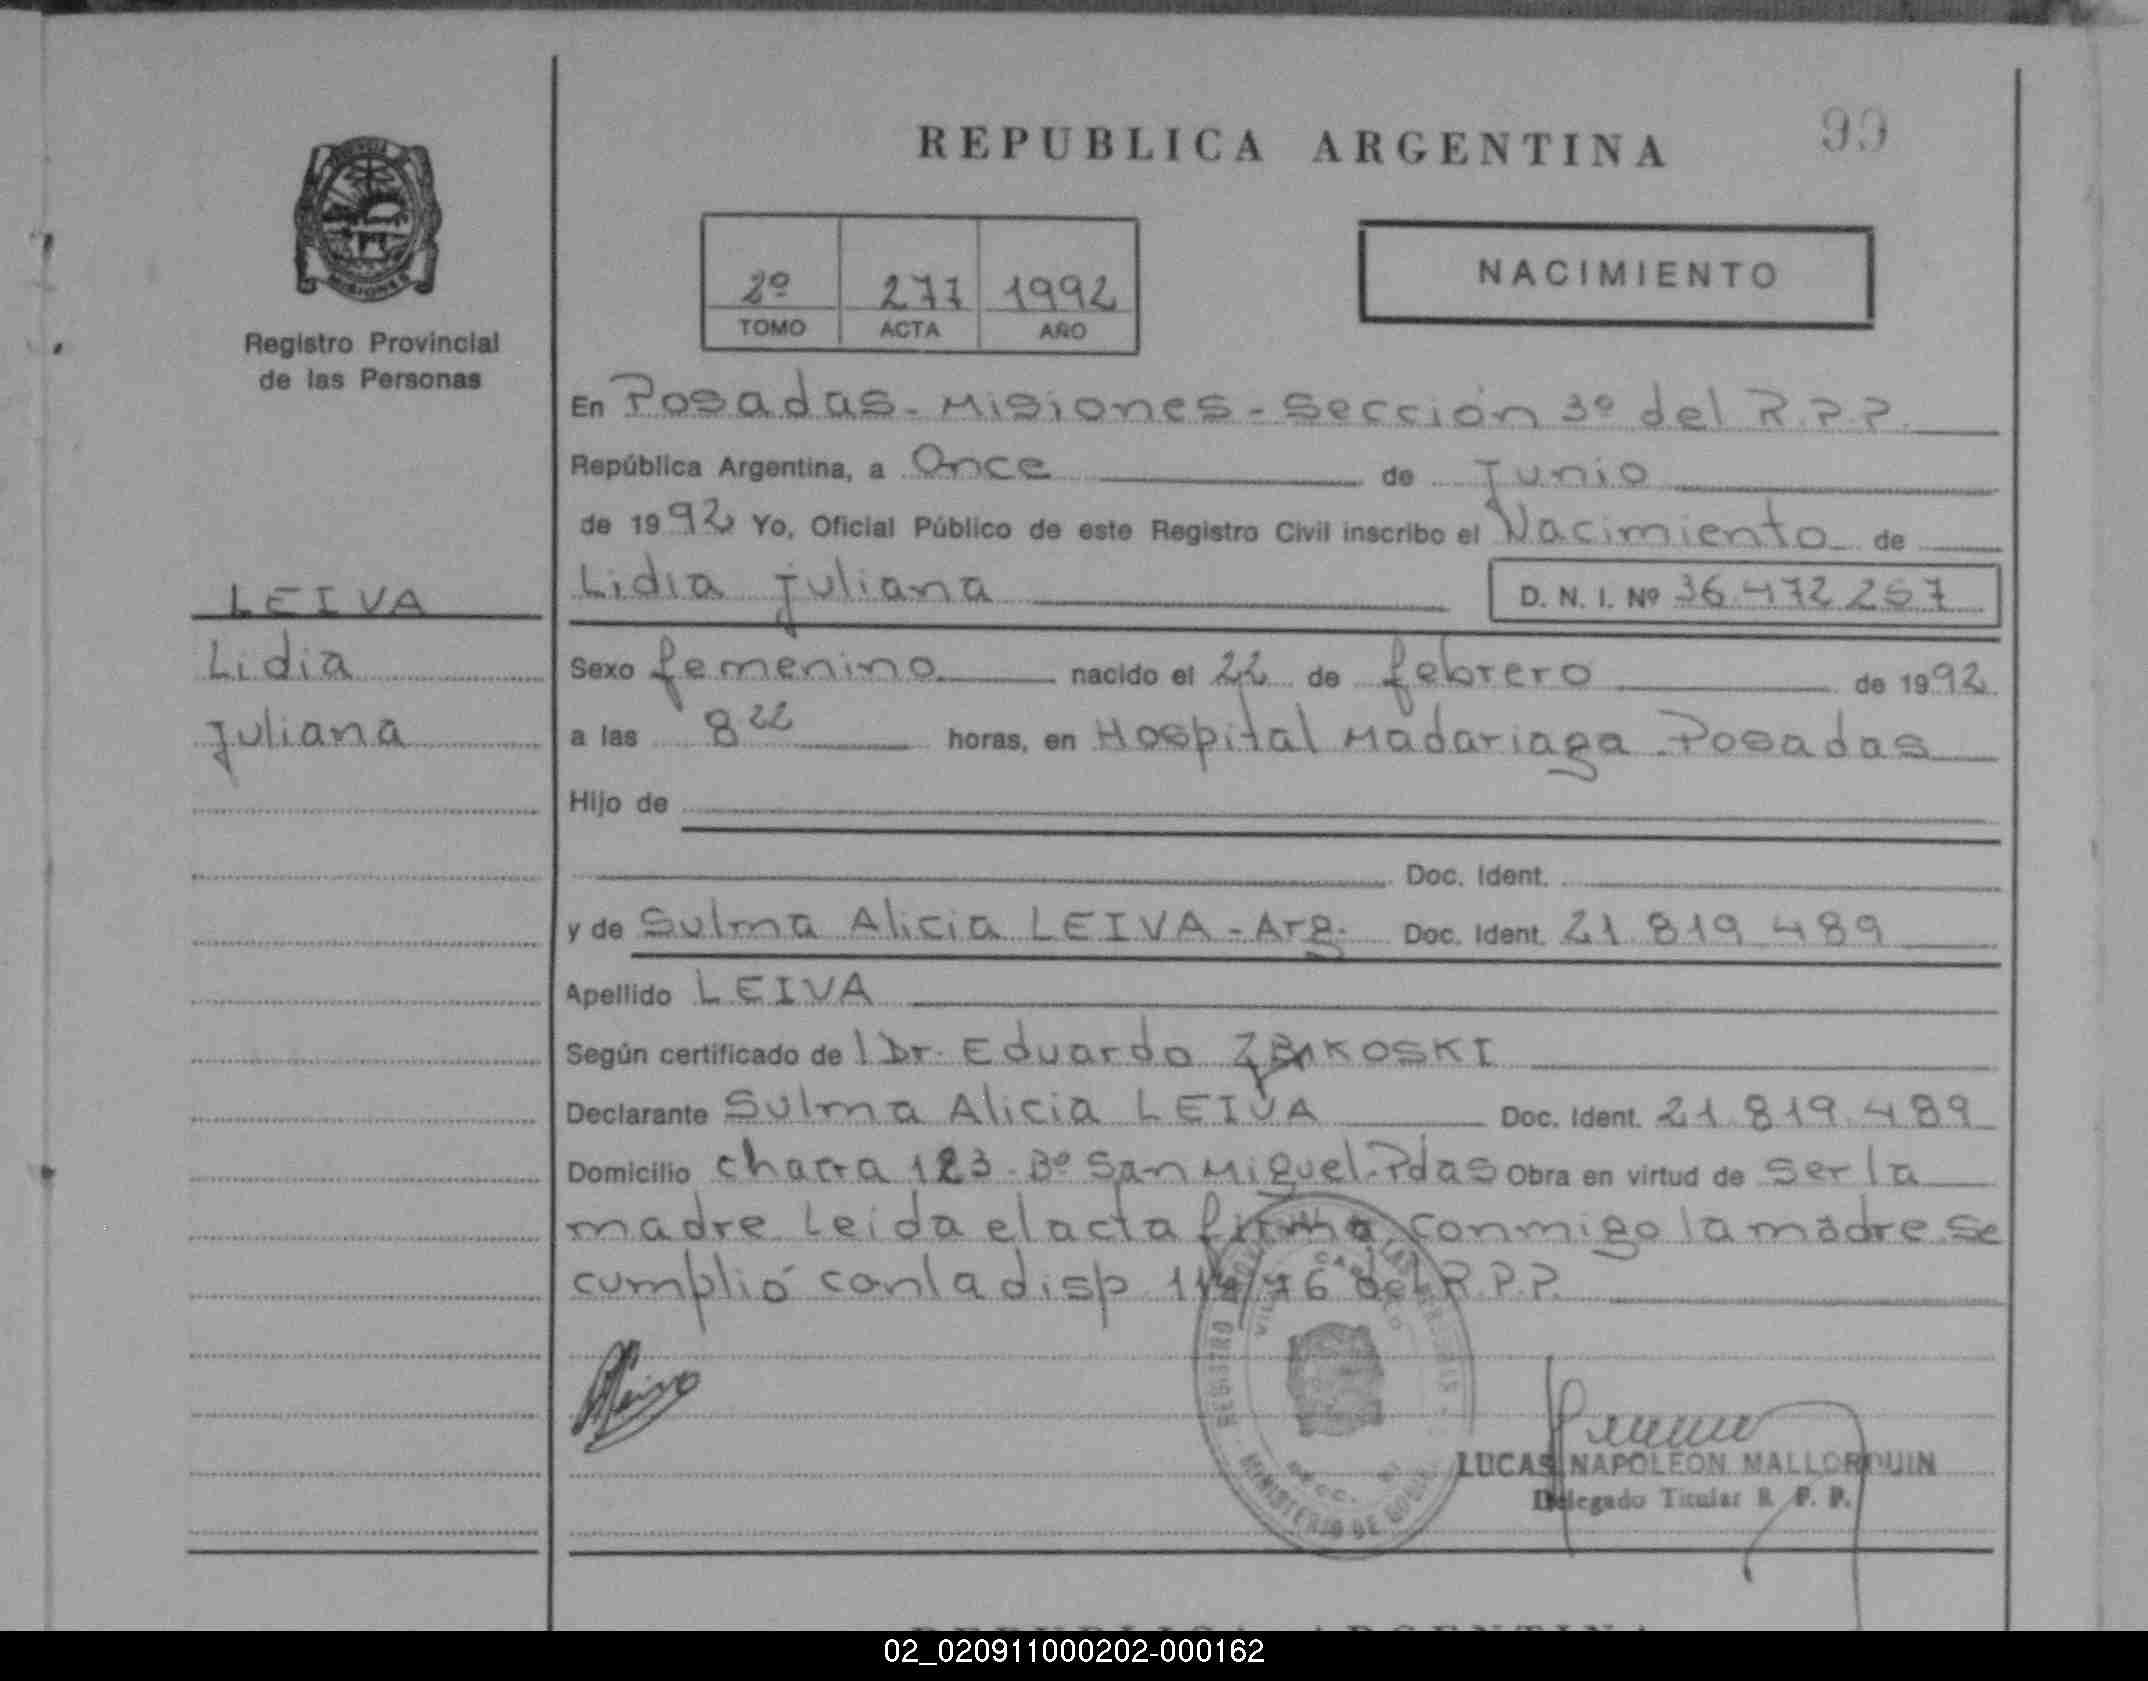 REPUBLICA ARGENTINA
99
Registro Provincial
de las Personas
2º 277 1992
TOMO ACTA AÑO
NACIMIENTO
En Posadas - Misiones - Sección 3º del R.P.P.
República Argentina, a Once de Junio
de 1992 Yo, Oficial Público de este Registro Civil inscribo el Nacimiento de
Lidia Juliana D. N. I. Nº 36.472.267
LEIVA
Lidia
Juliana
Sexo femenino nacido el 22 de febrero de 1992
a las 8 22 horas, en Hospital Madariaga - Posadas
Hijo de
Doc. Ident.
y de Sulma Alicia LEIVA - Arg. Doc. Ident. 21.819.489
Apellido LEIVA
Según certificado de l Dr. Eduardo
Declarante Sulma Alicia LEIVA Doc. Ident. 21.819.489
Domicilio chacra 123 - Bº San Miguel - Pdas Obra en virtud de ser la
madre Leida el acta firma conmigo la madre se
cumplió con la disp. del R.P.P.
LUCAS NAPOLEON MALLORQUIN
Delegado Titular R. P. P.
REPUBLICA ARGENTINA
02_020911000202-000162